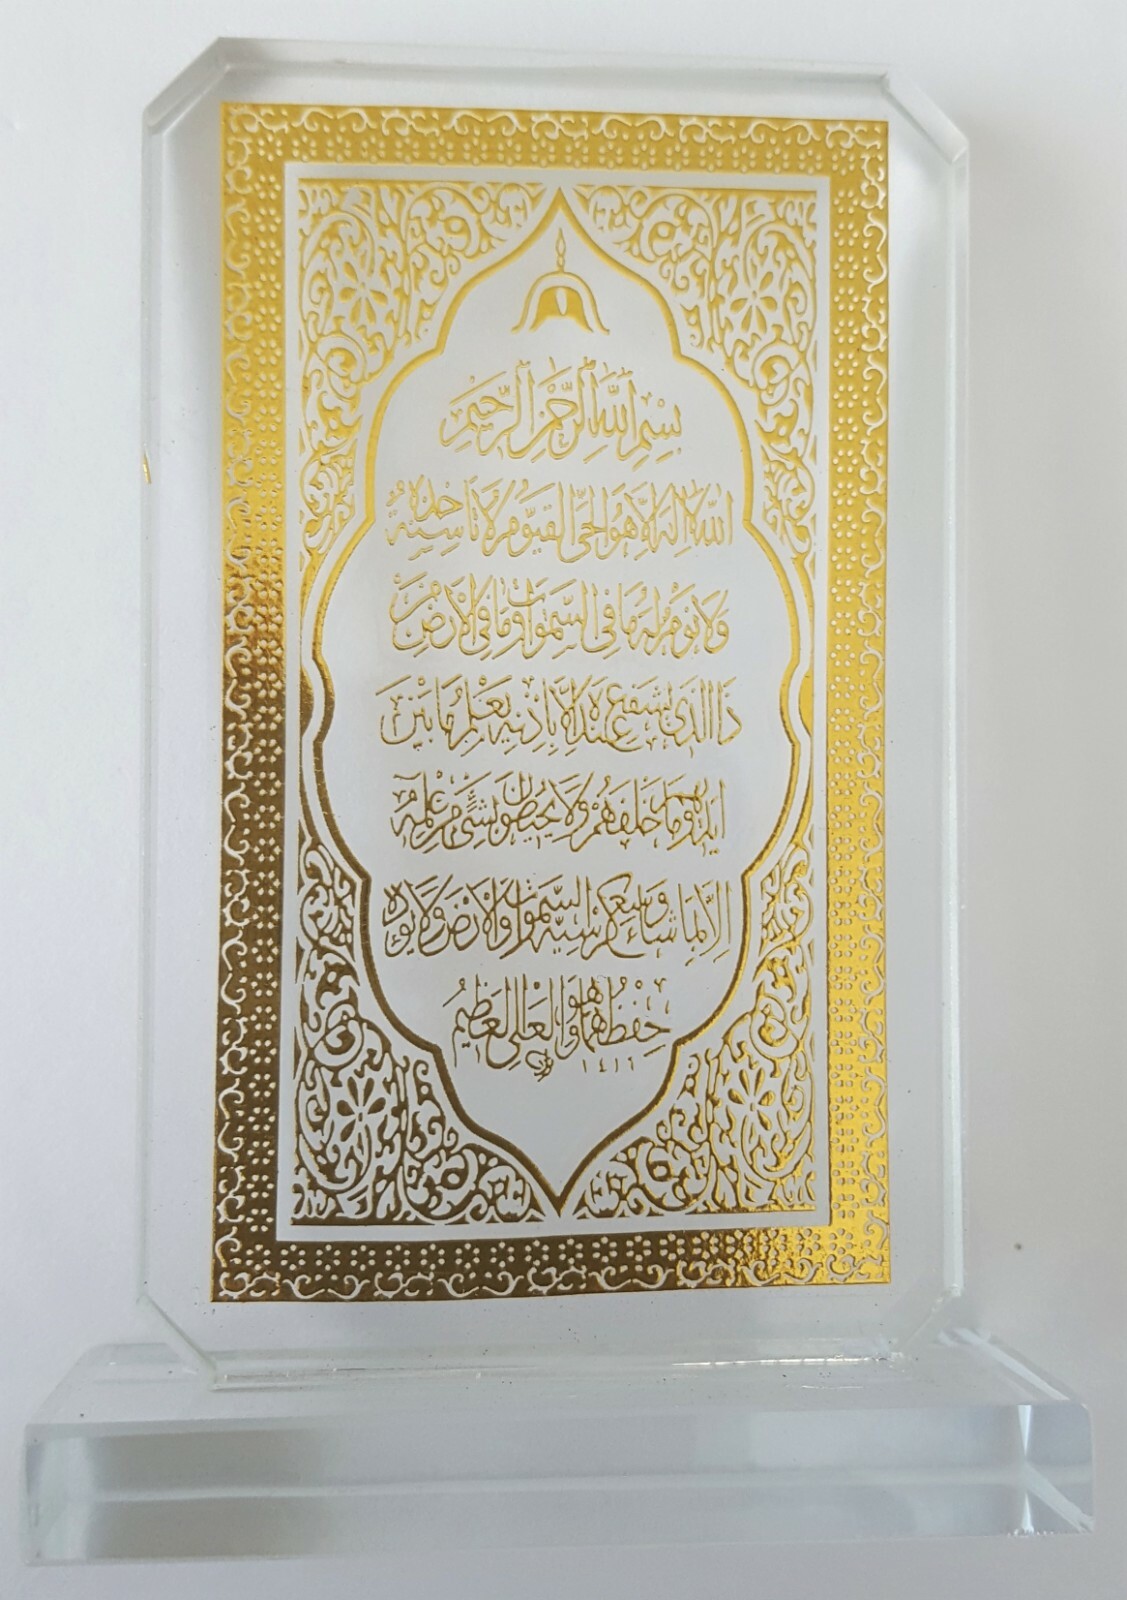 بِسْمِ اللهِ الرَّحْمٰنِ الرَّحِيْمِ
اللهُ لا اِلٰهَ اِلَّا هُوَ الْحَىُّ الْقَيُّوْمُ لَا تَاْخُذُهٗ سِنَةٌ
وَلَا نَوْمٌ لَهٗ مَا فِى السَّمٰوَاتِ وَمَا فِى الْاَرْضِ مَنْ
ذَا الَّذِى يَشْفَعُ عِنْدَهٗ اِلَّا بِاِذْنِهٖ يَعْلَمُ مَا بَيْنَ
اَيْدِيْهِمْ وَمَا خَلْفَهُمْ وَلَا يُحِيْطُوْنَ بِشَىْءٍ مِنْ عِلْمِهٖ
اِلَّا بِمَا شَاءَ وَسِعَ كُرْسِيُّهُ السَّمٰوَاتِ وَالْاَرْضَ وَلَا يَؤُدُهٗ
حِفْظُهُمَا وَهُوَ الْعَلِىُّ الْعَظِيْمُ
١٤١١